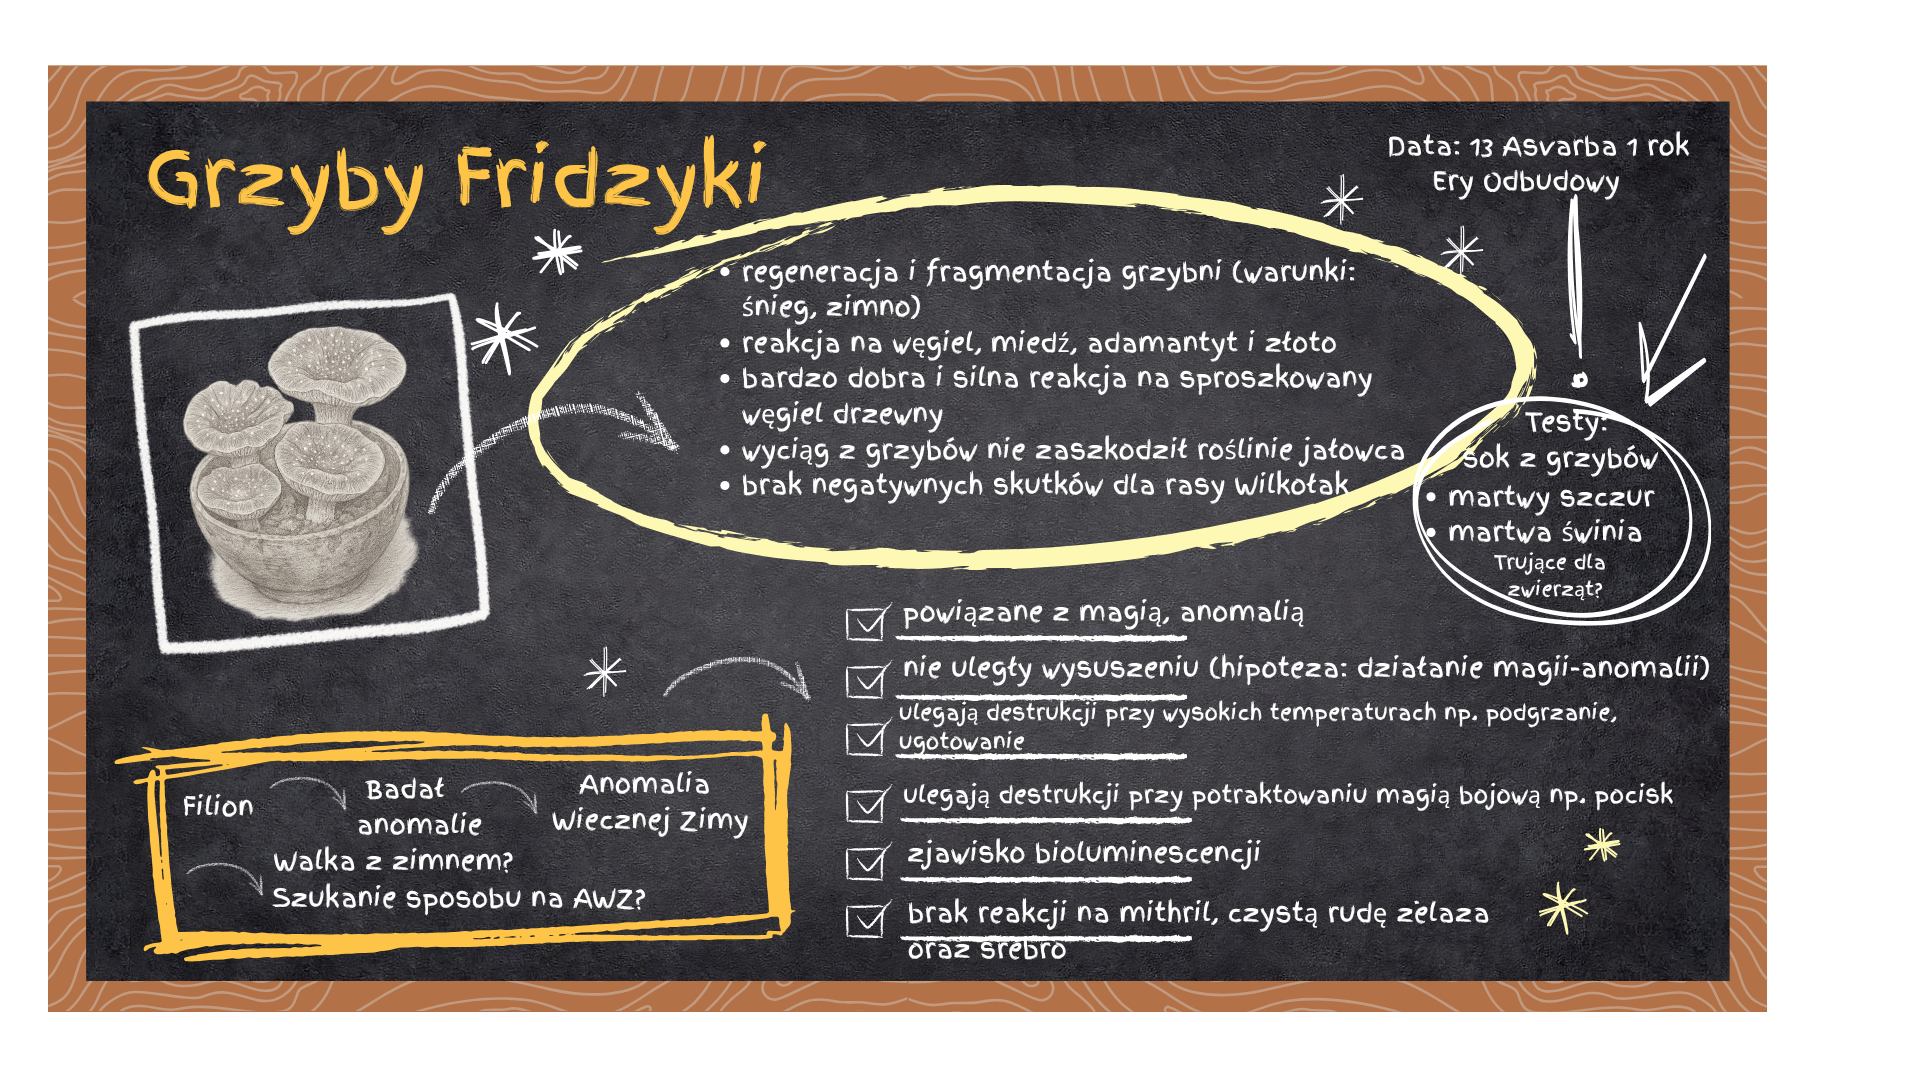 Grzyby Fridzyki
Data: 13 Asvarba 1 rok
Ery Odbudowy
regeneracja i fragmentacja grzybni (warunki:
śnieg, zimno)
reakcja na węgiel, miedź, adamantyt i złoto
bardzo dobra i silna reakcja na sproszkowany
węgiel drzewny
wyciąg z grzybów nie zaszkodził roślinie jałowca
brak negatywnych skutków dla rasy Wilkołak
Testy:
sok z grzybów
martwy szczur
martwa świnia
Trujące dla
zwierząt?
powiązane z magią, anomalią
nie uległy wysuszeniu (hipoteza: działanie magii-anomalii)
ulegają destrukcji przy wysokich temperaturach np. podgrzanie,
ugotowanie
ulegają destrukcji przy potraktowaniu magią bojową np. pocisk
zjawisko bioluminescencji
brak reakcji na mithril, czystą rudę żelaza
oraz srebro
Filion
Badał
anomalie
Anomalia
Wiecznej Zimy
Walka z zimnem?
Szukanie sposobu na AWZ?